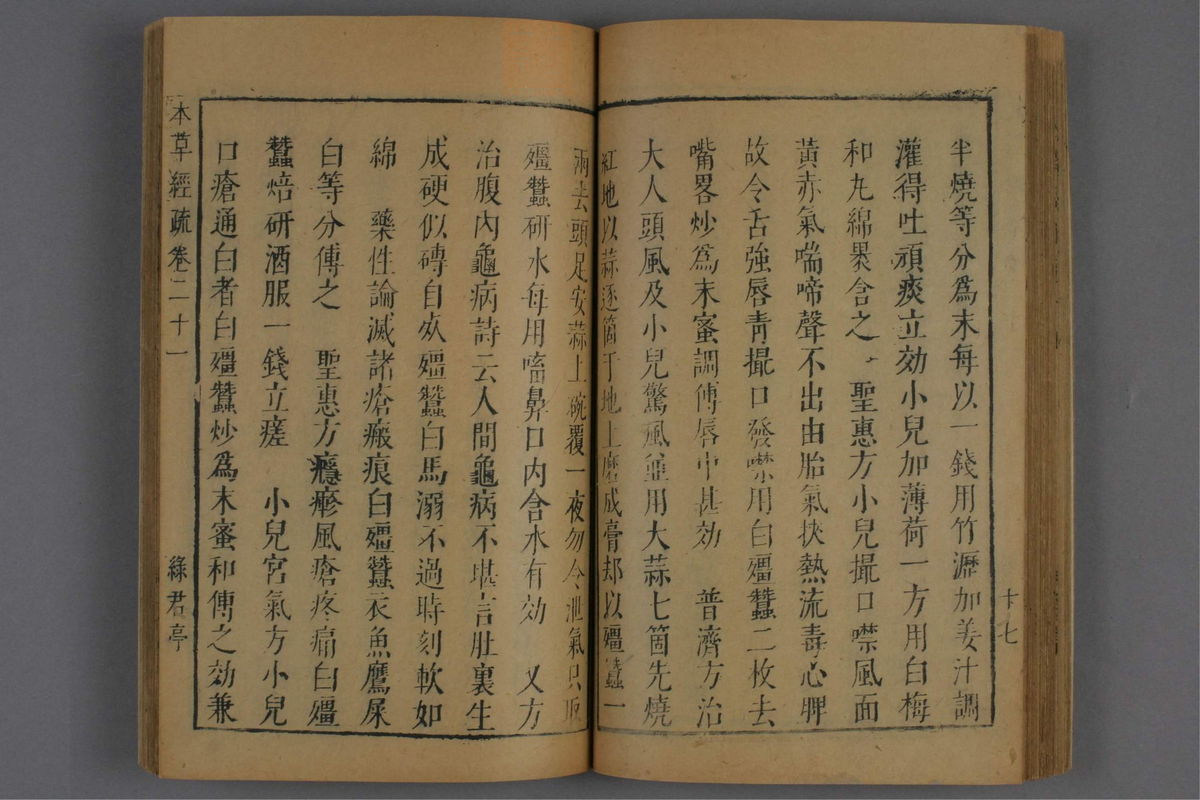 半燒等分爲末每以一錢用竹瀝加姜汁調
灌得吐頑痰立効小兒加薄荷一方用白梅
和丸綿褁含之 聖惠方小兒撮口噤風面
黃赤氣喘啼聲不出由胎氣挾熱流毒心脾
故令舌強唇青撮口發噤用白殭蠶二枚去
嘴畧炒爲末蜜調傅唇中甚効 普濟方治
大人頭風及小兒驚風並用大蒜七箇先燒
紅地以蒜逐箇于地上磨成膏却以殭蠶一
兩去頭足安蒜上碗覆一夜勿令泄氣只取
殭蠶研水每用㗜鼻口内含水有効 又方
治腹内龜病詩云人間龜病不堪言肚裏生
成硬似磚自𣦸殭蠶白馬溺不過時刻軟如
綿 藥性論滅諸瘡瘢痕白殭蠶衣魚鷹屎
白等分傅之 聖惠方癮瘮風瘡疼痛白殭
蠶焙研酒服一錢立瘥 小兒宮氣方小兒
口瘡通白者白殭蠶炒爲末蜜和傅之効兼
本草經疏 卷二十一
綠君亭